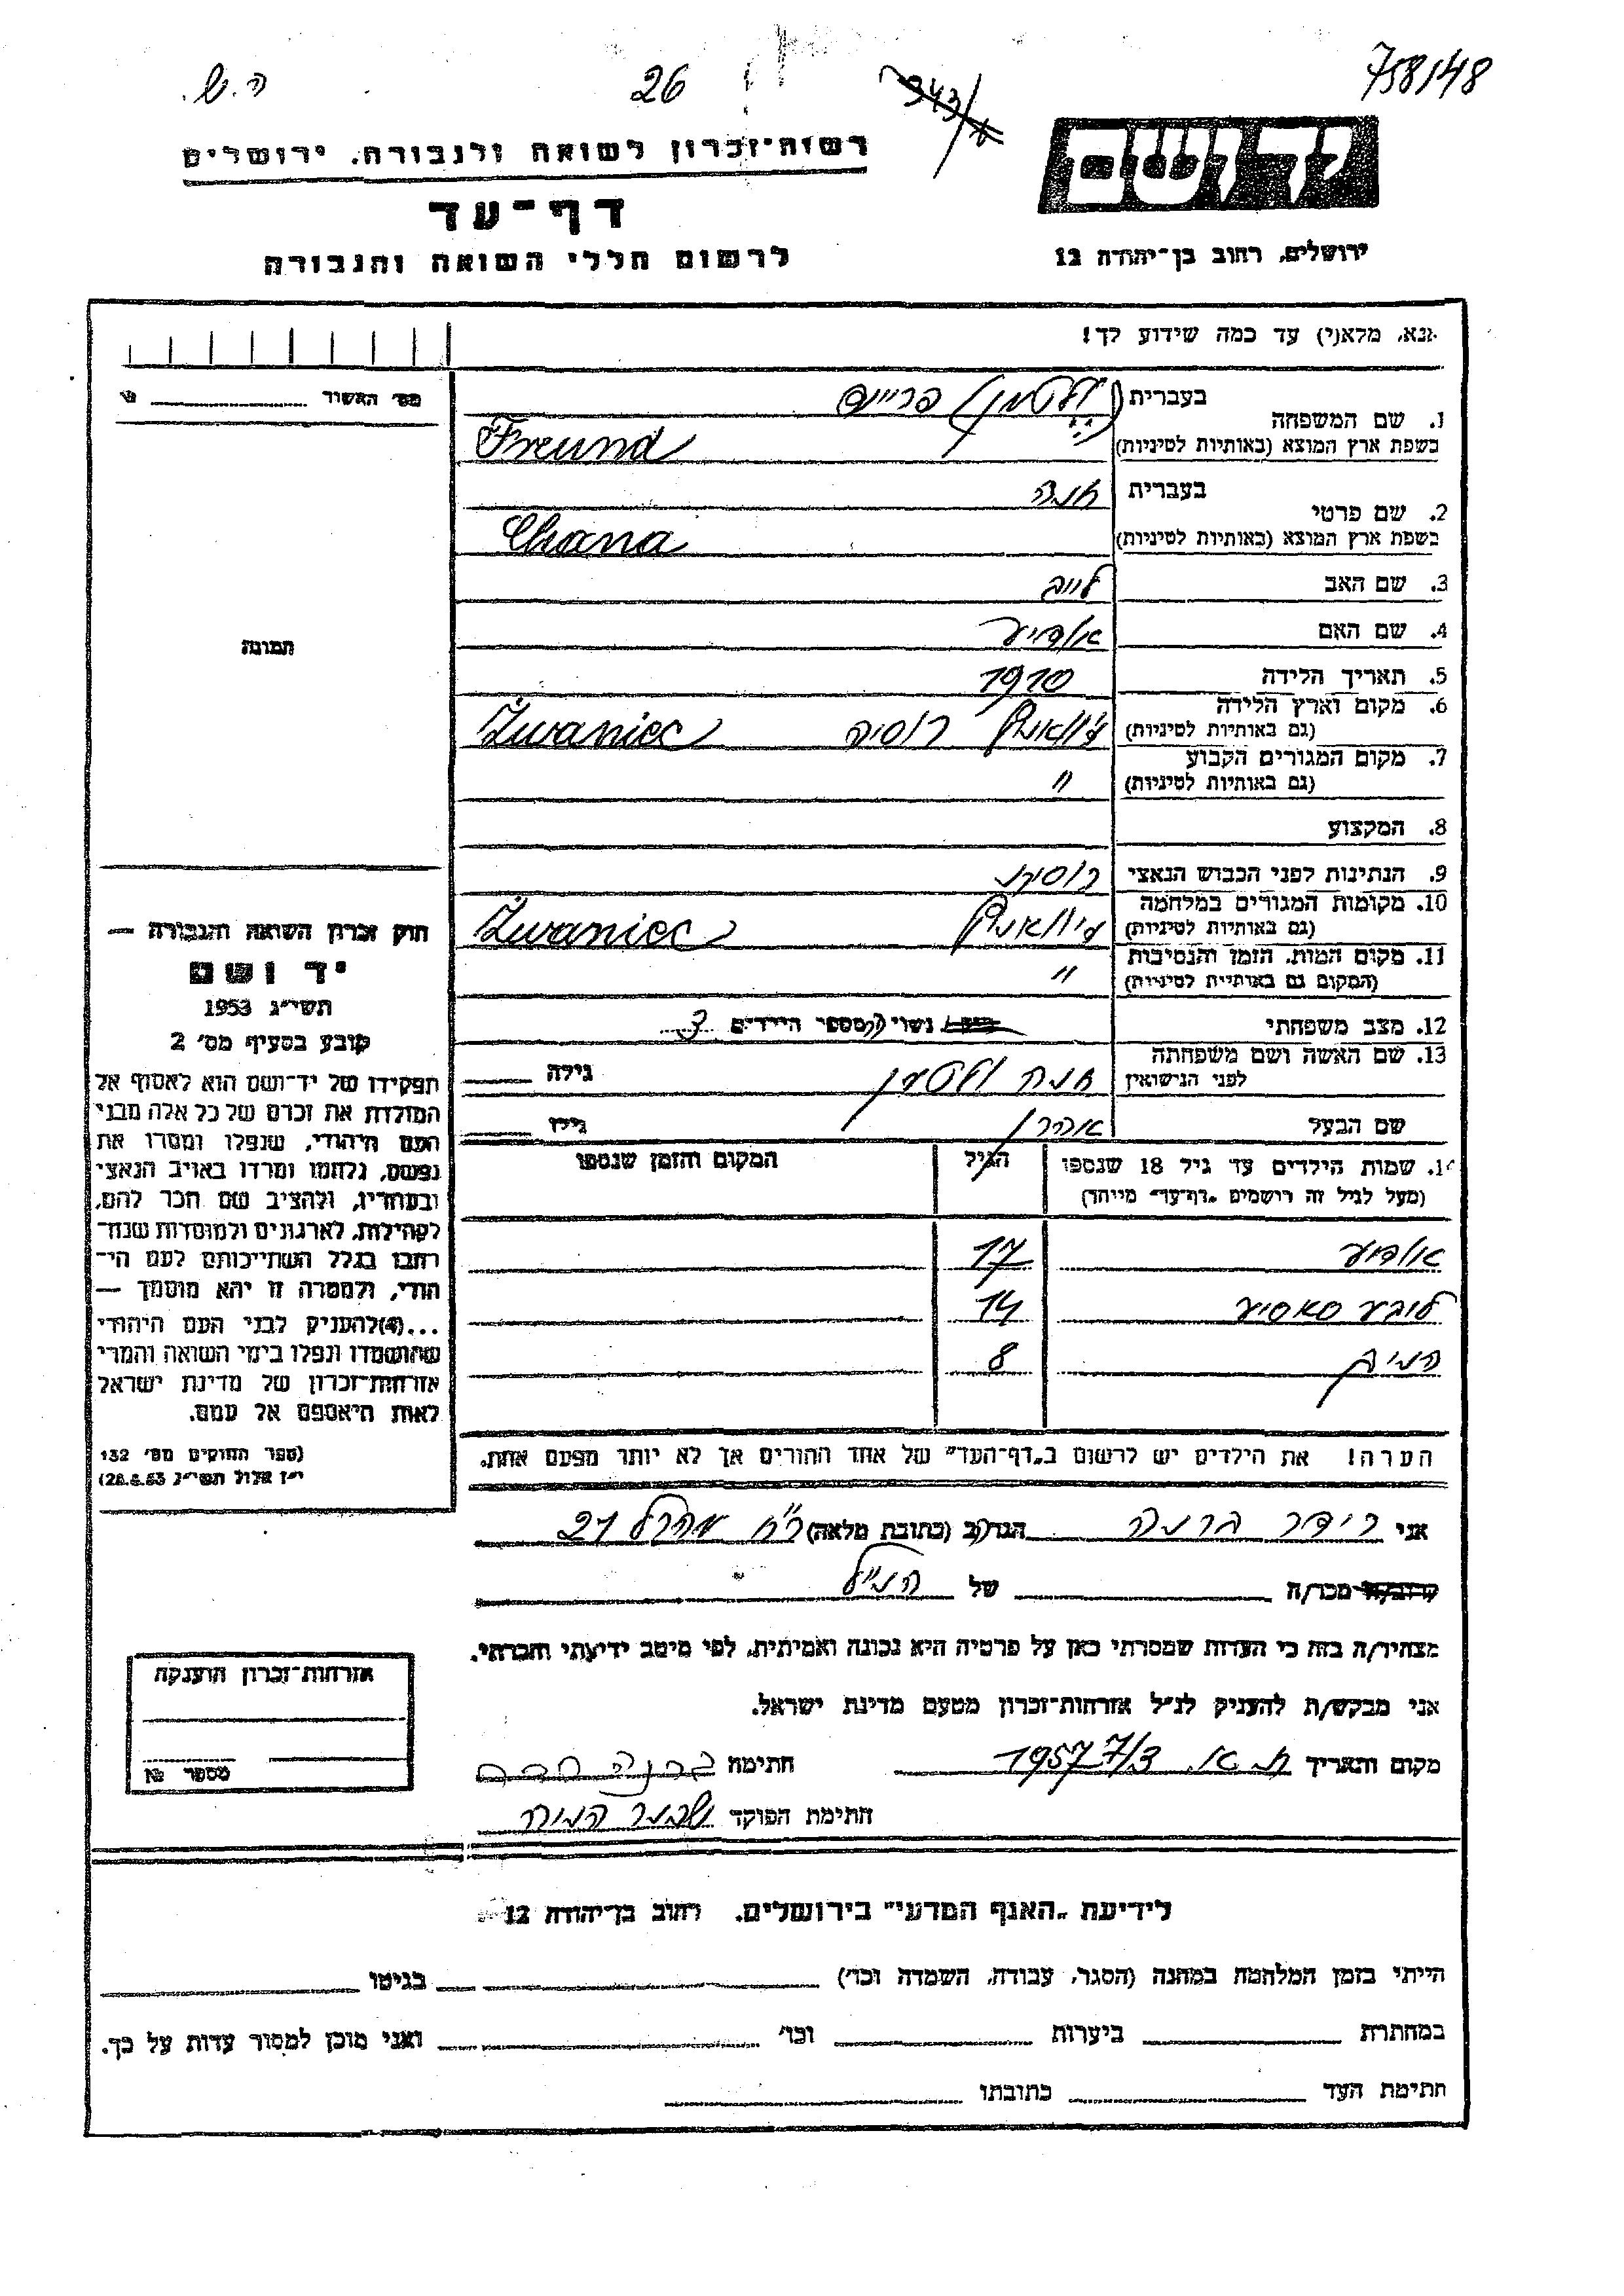 758/48
26
ה.ש.
יד ושם
ירושלים, רחוב בן־יהודה 12
רשות־זכרון לשואה ולגבורה, ירושלים
דף־עד
לרשום חללי השואה והגבורה
אנא, מלא(י) עד כמה שידוע לך!
מס׳ האשור
1. שם המשפחה
בעברית
(וולטמן) פרוינד
בשפת ארץ המוצא (באותיות לטיניות)
Freund
2. שם פרטי
בעברית
חנה
בשפת ארץ המוצא (באותיות לטיניות)
Chana
3. שם האב
לייב
4. שם האם
5. תאריך הלידה
1910
6. מקום וארץ הלידה
(גם באותיות לטיניות)
רוסיה
Żwaniec
7. מקום המגורים הקבוע
(גם באותיות לטיניות)
"
8. המקצוע
9. הנתינות לפני הכבוש הנאצי
10. מקומות המגורים במלחמה
(גם באותיות לטיניות)
Żwaniec
11. מקום המות, הזמן והנסיבות
(המקום גם באותיות לטיניות)
"
12. מצב משפחתי
נשוי/ה מספר הילדים 3
13. שם האשה ושם משפחתה
לפני הנישואין
חנה וולטמן
גילה
שם הבעל
אהרן
גילו
14. שמות הילדים עד גיל 18 שנספו
(מעל לגיל זה רושמים „דף־עד״ מיוחד)
הגיל
המקום והזמן שנספו
17
14
8
הערה! את הילדים יש לרשום ב„דף־העד״ של אחד ההורים אך לא יותר מפעם אחת.
תמונה
חוק זכרון השואה והגבורה —
יד ושם
תשי״ג 1953
קובע בסעיף מס׳ 2
תפקידו של יד־ושם הוא לאסוף אל
המולדת את זכרם של כל אלה מבני
העם היהודי, שנפלו ומסרו את
נפשם, נלחמו ומרדו באויב הנאצי
ובעוזריו, ולהציב שם וזכר להם,
לקהילות, לארגונים ולמוסדות שנח־
רבו בגלל השתייכותם לעם הי־
הודי, ולמטרה זו יהא מוסמך —
...(4) להעניק לבני העם היהודי
שהושמדו ונפלו בימי השואה והמרי
אזרחות־זכרון של מדינת ישראל
לאות היאספם אל עמם.
(ספר החוקים מס׳ 132
י״ז אלול תשי״ג 28.8.53)
אני
הגר/ה ב (כתובת מלאה)
21
קרוב/ה מכר/ה
של
הנ״ל
מצהיר/ה בזה כי העדות שמסרתי כאן על פרטיה היא נכונה ואמיתית, לפי מיטב ידיעתי והכרתי.
אני מבקש/ת להעניק לנ״ל אזרחות־זכרון מטעם מדינת ישראל.
מקום ותאריך ת.א. 7/3 1957
חתימה
חתימת הפוקד
אזרחות־זכרון הוענקה
מספר №
לידיעת „האגף המדעי״ בירושלים. רחוב בן־יהודה 12
הייתי בזמן המלחמה במחנה (הסגר, עבודה, השמדה וכו׳)
בגיטו
במחתרת
ביערות
וכו׳
ואני מוכן למסור עדות על כך.
חתימת העד
כתובתו